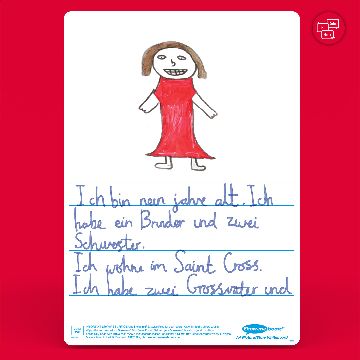 Ich bin nein jahre alt. Ich
habe ein Bruder und zwei
Schwester.
Ich wohne im Saint Cross.
Ich habe zwei Grosvater und